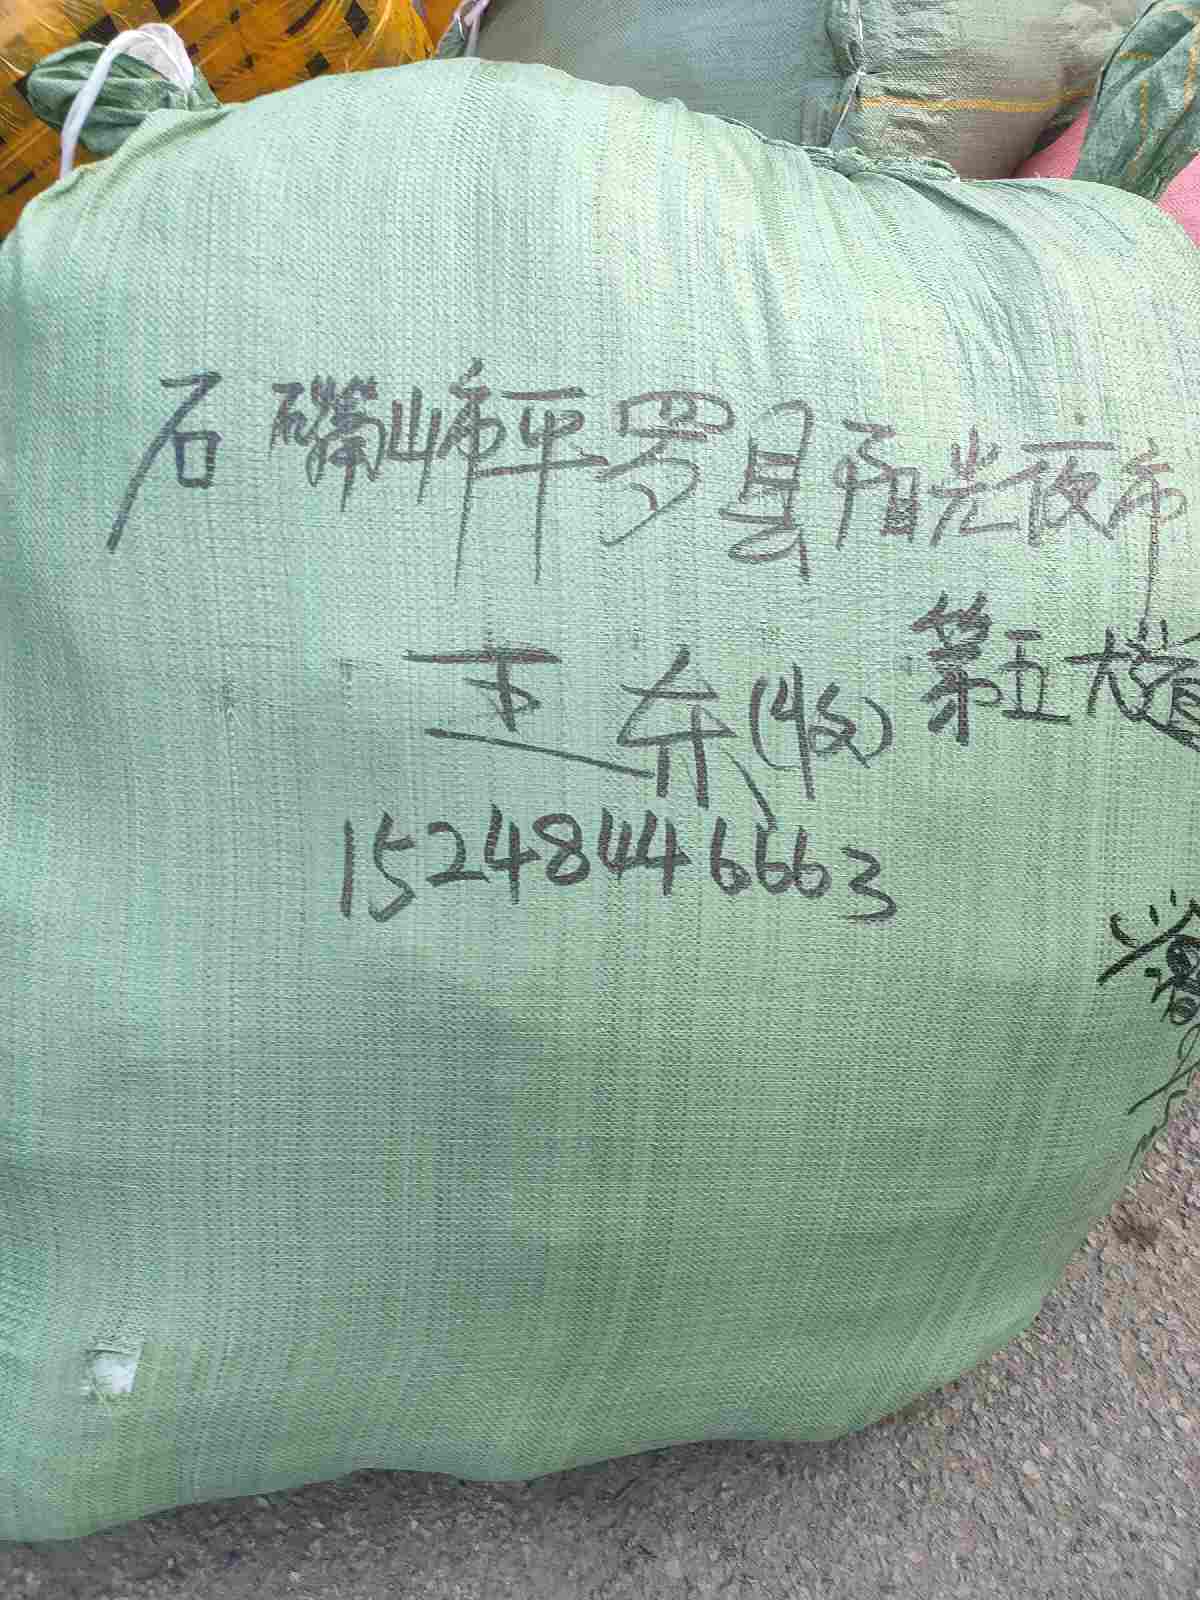 石嘴山市平罗县阳光夜市
第五大道
王东(收)
15248446663